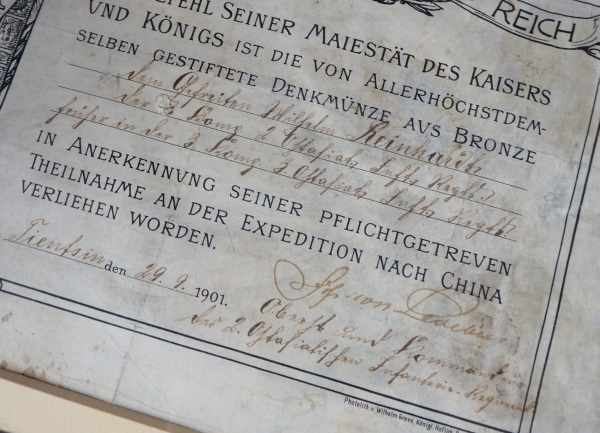 REICH
BEFEHL SEINER MAIESTÄT DES KAISERS
UND KÖNIGS IST DIE VON ALLERHÖCHSTDEM-
SELBEN GESTIFTETE DENKMÜNZE AVS BRONZE
dem Gefreiten Wilhelm Reinhardt
der 2. Komp 2. Ostasiat. Inft. Regts.
früher in der 3. Komp 3 Ostasiat. Inft. Regts.
IN ANERKENNVNG SEINER PFLICHTGETREVEN
THEILNAHME AN DER EXPEDITION NACH CHINA
VERLIEHEN WORDEN.
Tientsin den 29. 9. 1901.
Frh. von
Oberst und Kommandeur
des 2. Ostasiatischen Infanterie-Regiments
Photolith. v. Wilhelm Greve, Königl. Hoflith.